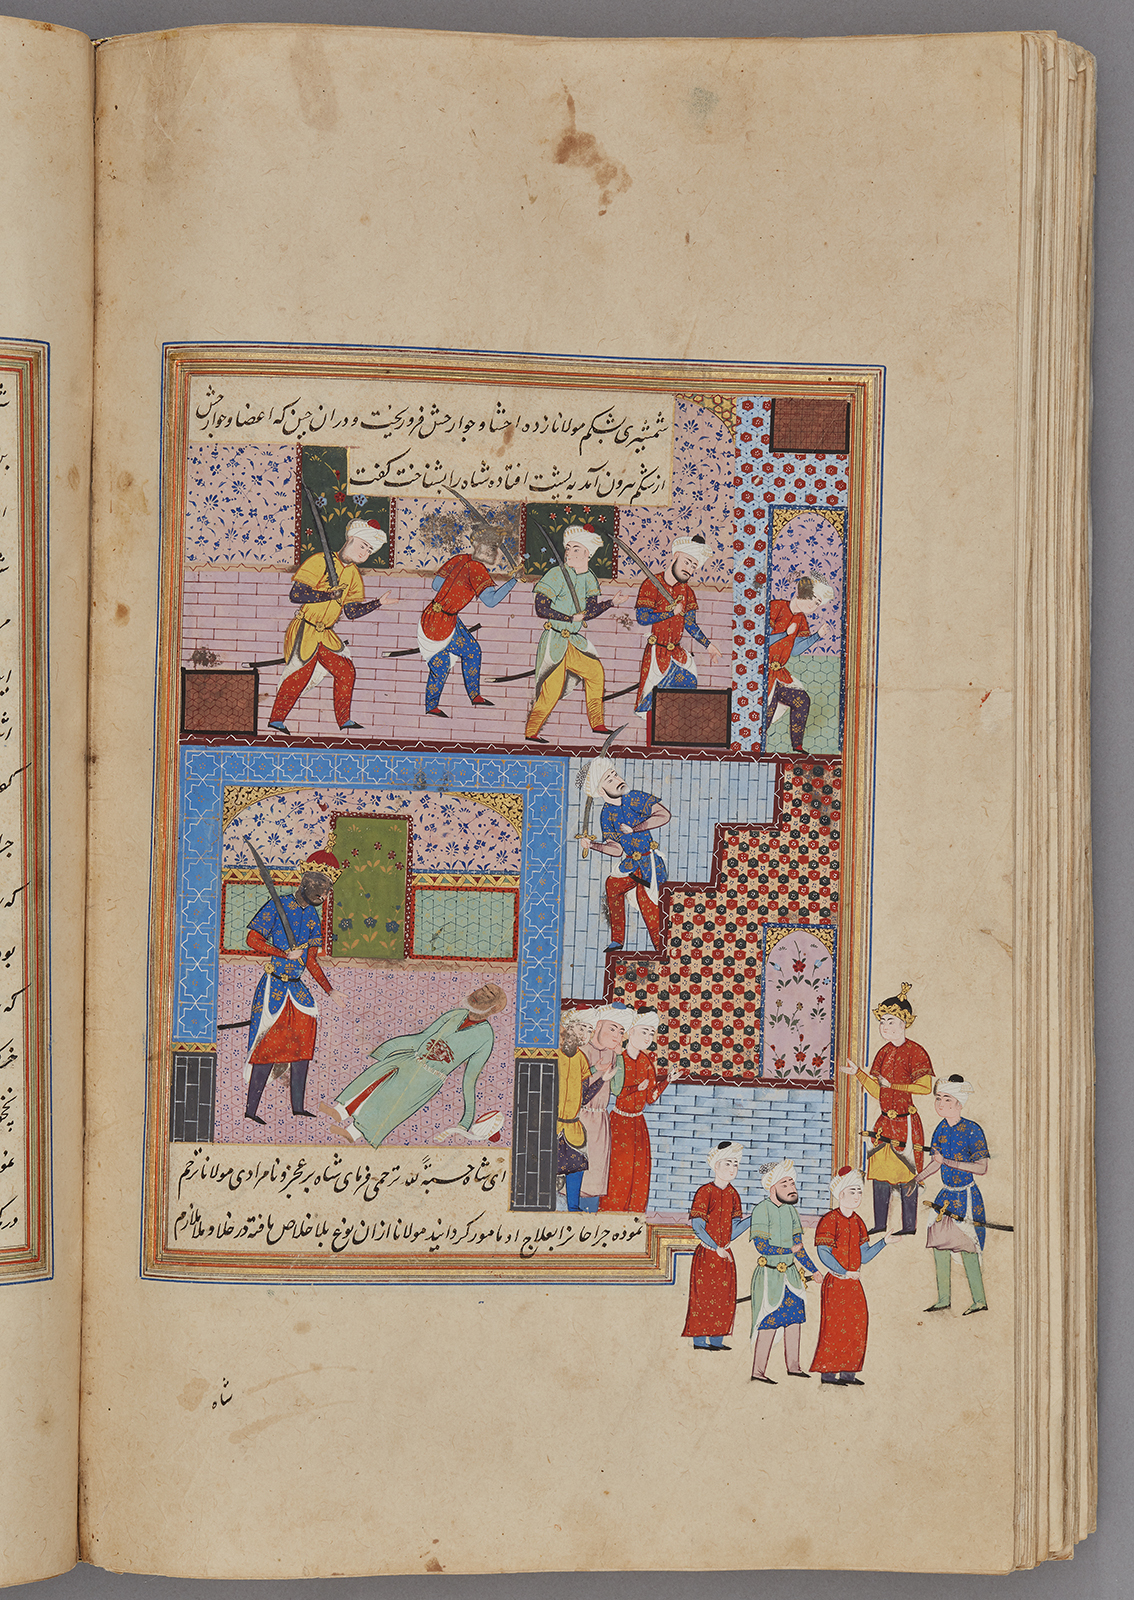 شمشیری بشکم مولانا زده احشا و جوارحش فروریخت و دران حین که اعضا و جوارحش
از شکم بیرون آمد به پشت افتاده شاه را بشناخت گفت
ای شاه حسبتة لله ترحمی فرمای شاه بر عجز و نامرادی مولانا ترحم
نموده جراحانرا بعلاج او مامور گردانید مولانا ازان نوع بلا خلاص یافته در خلا و ملا ملازم
شاه